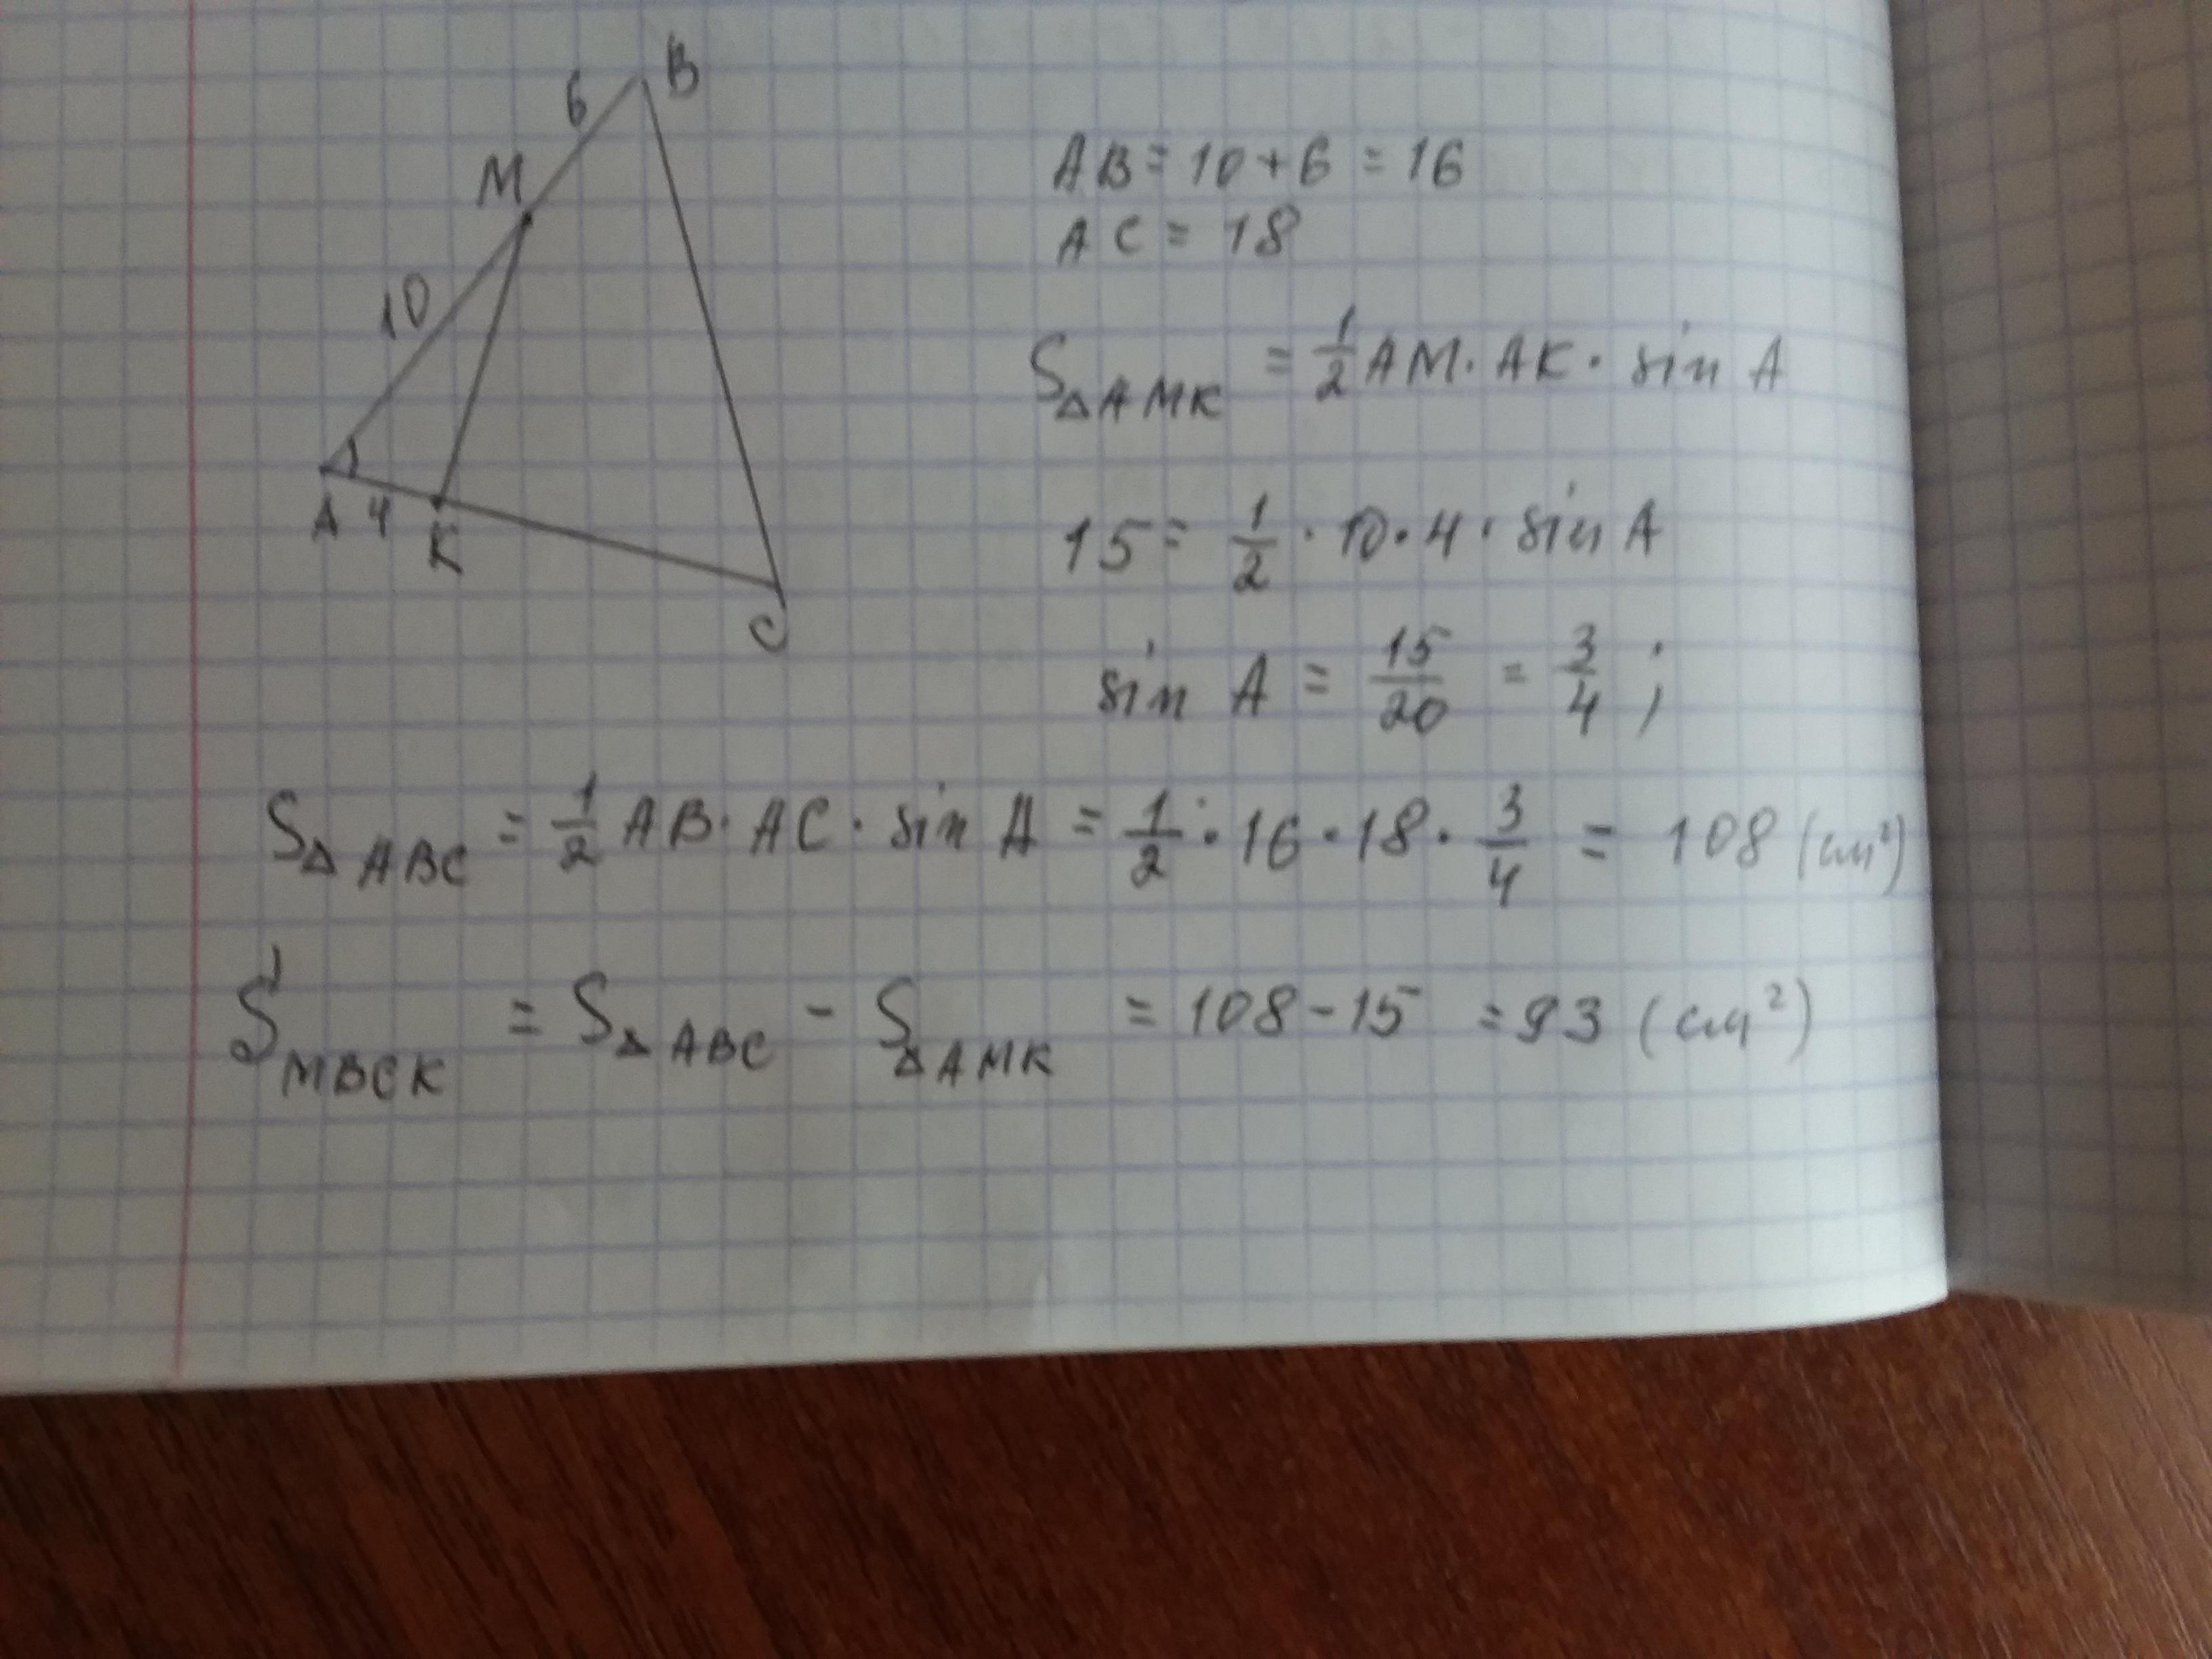 B
6
M
10
A 4
K
C
AB = 10 + 6 = 16
AC = 18
S△AMK = 1/2 AM · AK · sin A
15 = 1/2 · 10 · 4 · sin A
sin A = 15/20 = 3/4 ;
S△ABC = 1/2 AB · AC · sin A = 1/2 · 16 · 18 · 3/4 = 108 (см²)
SMBCK = S△ABC - S△AMK = 108 - 15 = 93 (см²)